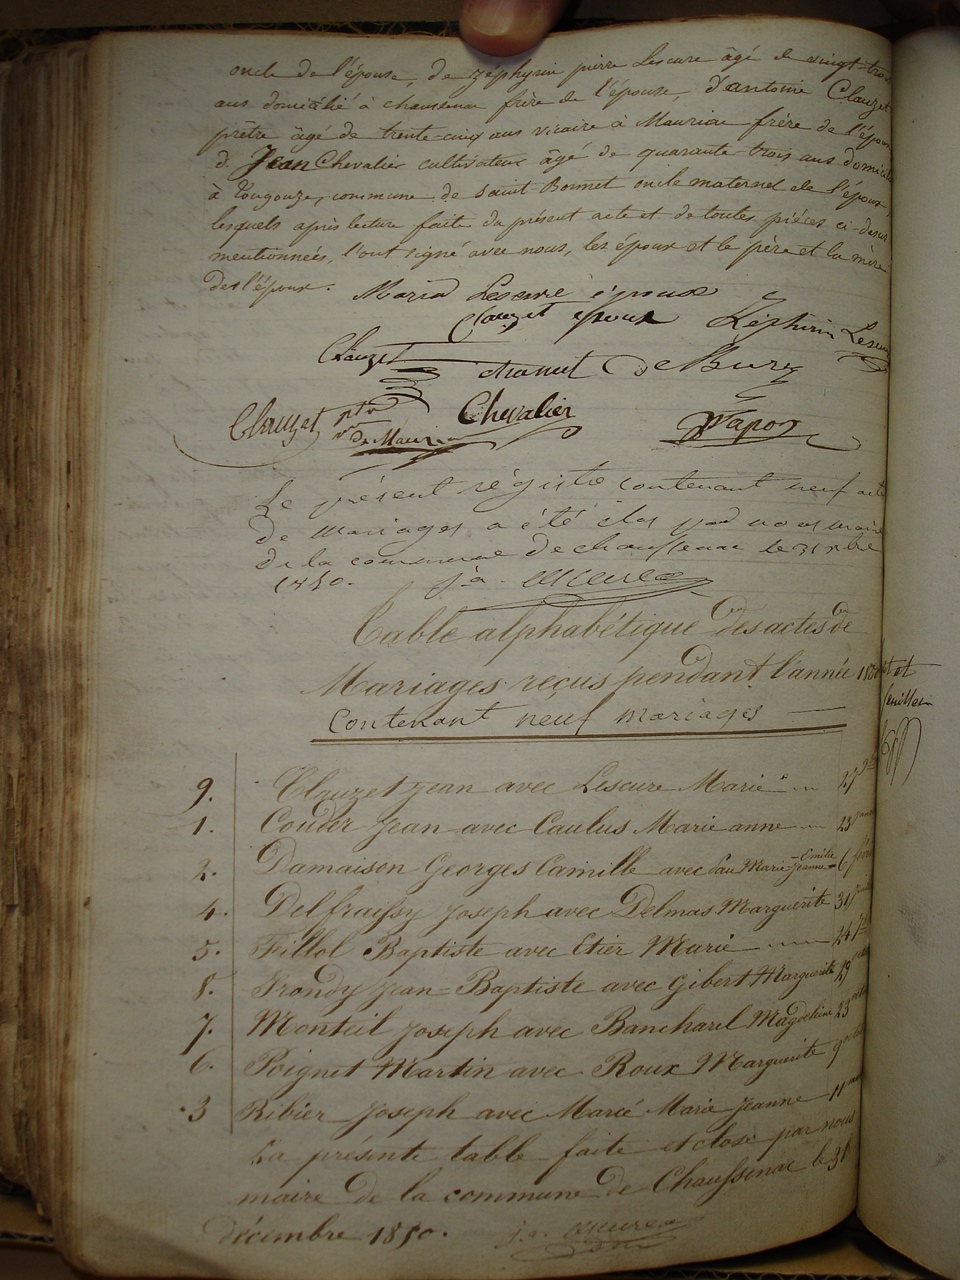 oncle de l'épouse, de Zéphyrin pierre Lescure âgé de vingt-trois
ans domicilié à chaussenac frère de l'épouse, d'antoine Clauzet
prêtre âgé de trente-cinq ans vicaire à Mauriac frère de l'époux
d. Jean Chevalier cultivateur âgé de quarante-trois ans domicilié
à Tougouze, commune de Saint-Bonnet oncle maternel de l'époux,
lesquels après lecture faite du présent acte et de toutes pièces ci-dessus
mentionnées, l'ont signé avec nous, les époux et le père et la mère
de l'époux.
Maria Lescure épouse
Clauzet époux Zéphirin Lescure
Clauzet chanut
Clauzet ptre Chevalier
vre de Mauriac
Le présent régistre contenant neuf actes
de mariages a été clos par nous maire
de la commune de chaussenac le 31 xbre
1850.
Table alphabétique des actes de
Mariages reçus pendant l'année 1850
Contenant neuf mariages
9. Clauzet Jean avec Lescure Marie 27 9bre
1. Couder Jean avec Caulus Marie anne 23 janvier
2. Damaison Georges Camille avec Marie-Emilie Jeanne 6
4. Delfraissy Joseph avec Delmas Marguerite 31 juillet
5. Fillol Baptiste avec Etier Marie 24 7bre
8. Frondy Jean-Baptiste avec Gibert Marguerite 29
7. Monteil Joseph avec Bancharel Magdeleine 23
6. Poignet Martin avec Roux Marguerite 9
3 Ribier Joseph avec Marie Jeanne 11
La présente table faite et close par nous
maire de la commune de Chaussenac le 31
décembre 1850.